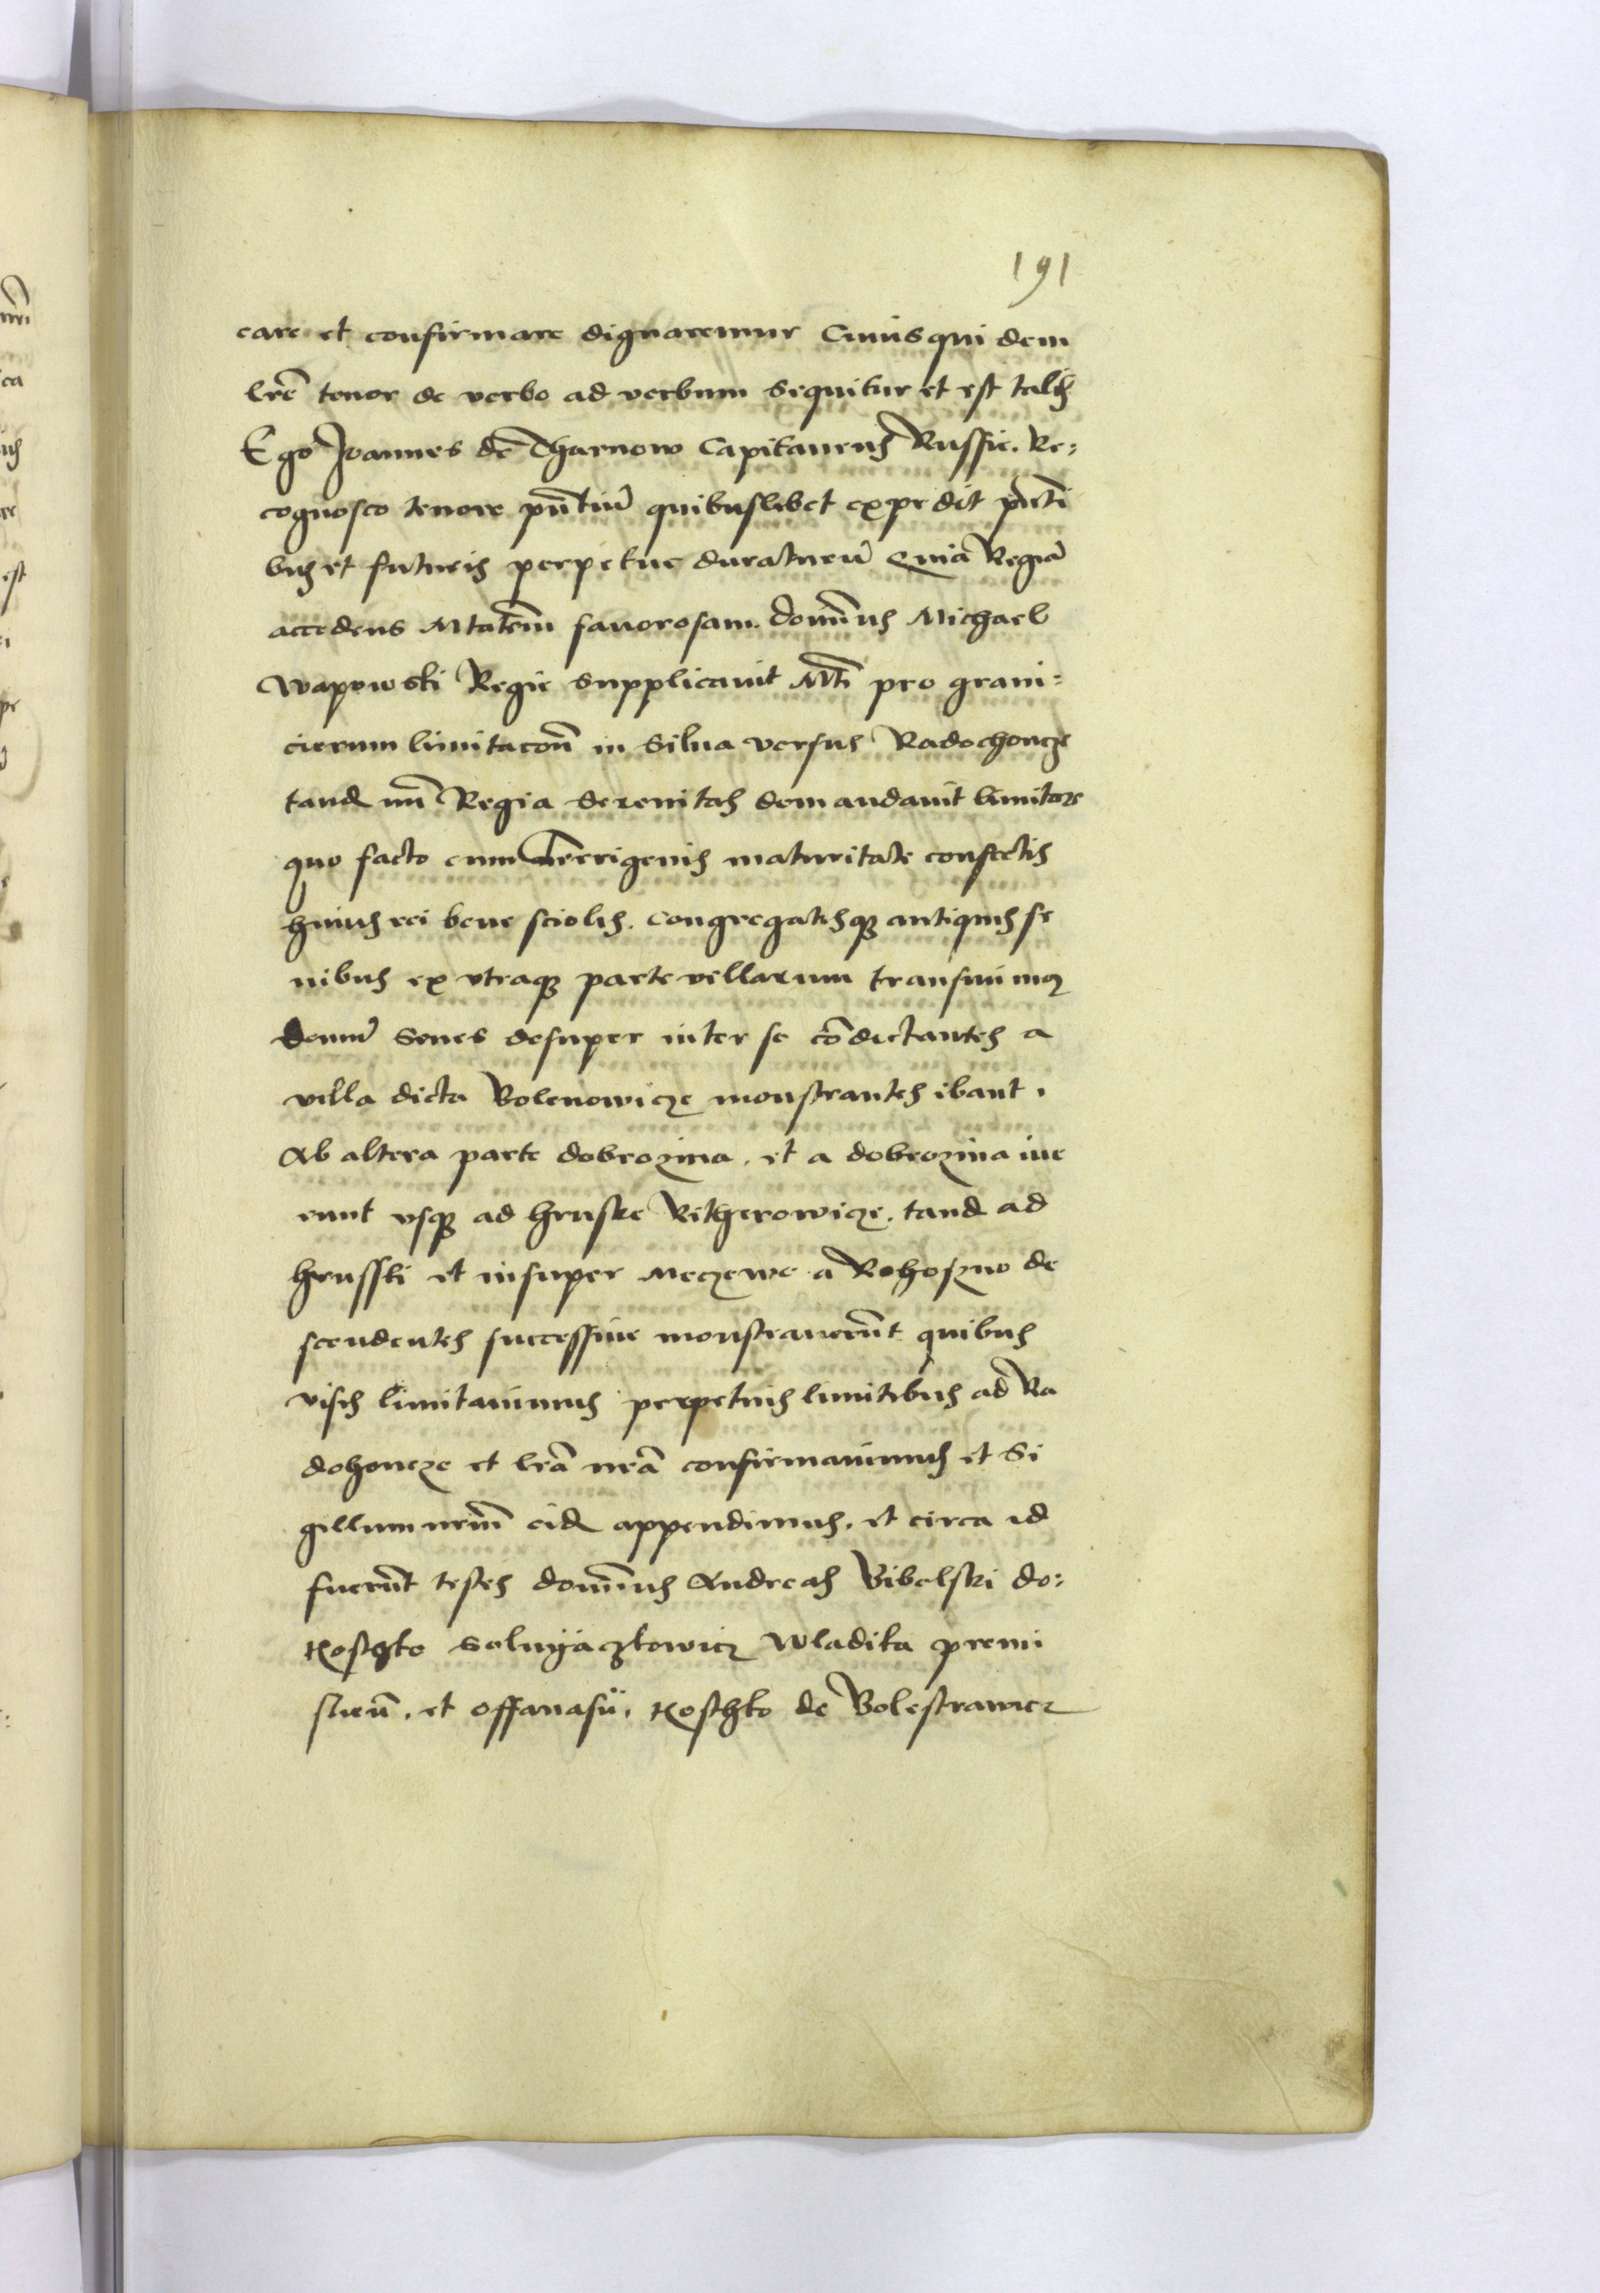 191
care et confirmare dignaremur Cuius qui dem
lrẽ tenor de verbo ad verbum sequitur et est talis
Ego Joannes de Tharnow Capitaneus Russie. Re=
cognosco tenore pñtiũ quibuslibet expedit pñti
bus et futuris perpetue duraturũ Quia Regiã
accedens Mtatem̃ favorosam. Domĩnus Michael
Wapowski Regie supplicauit Mti pro grani=
cierum limitacoñ in silua versus Radochoncze
tandẽ mĩ Regia serenitas demandauit limitare
quo facto cum terrigenis maturitate confectis
huius rei bene sciolis. congregatisqȝ antiquis se
nibus ex vtraqȝ parte villarum transiuimꝰ
demũ senes desuper inter se cõdictantes a
villa dicta Bolenowicze monstrantes ibant.
Ab altera parte dobrozina. et a dobrozina iue
runt vsqȝ ad hruske Ritherowicze. tandẽ ad
hrusski et insuper meczewe a Rohoszno de
scendentes successiue monstrauerũt quibus
visis limitauimus perpetuis limitibus ad Ra
dohoncze et lrã nrã confirmauimus et si
gillum nrm̃ eidẽ appendimus. et circa id
fuerũt testes domĩnus Andreas Bibelski do=
Koschko Soluyaczkowicz Wladika premi
slieñ. et offanasii. Koschko de Bolestrawicz